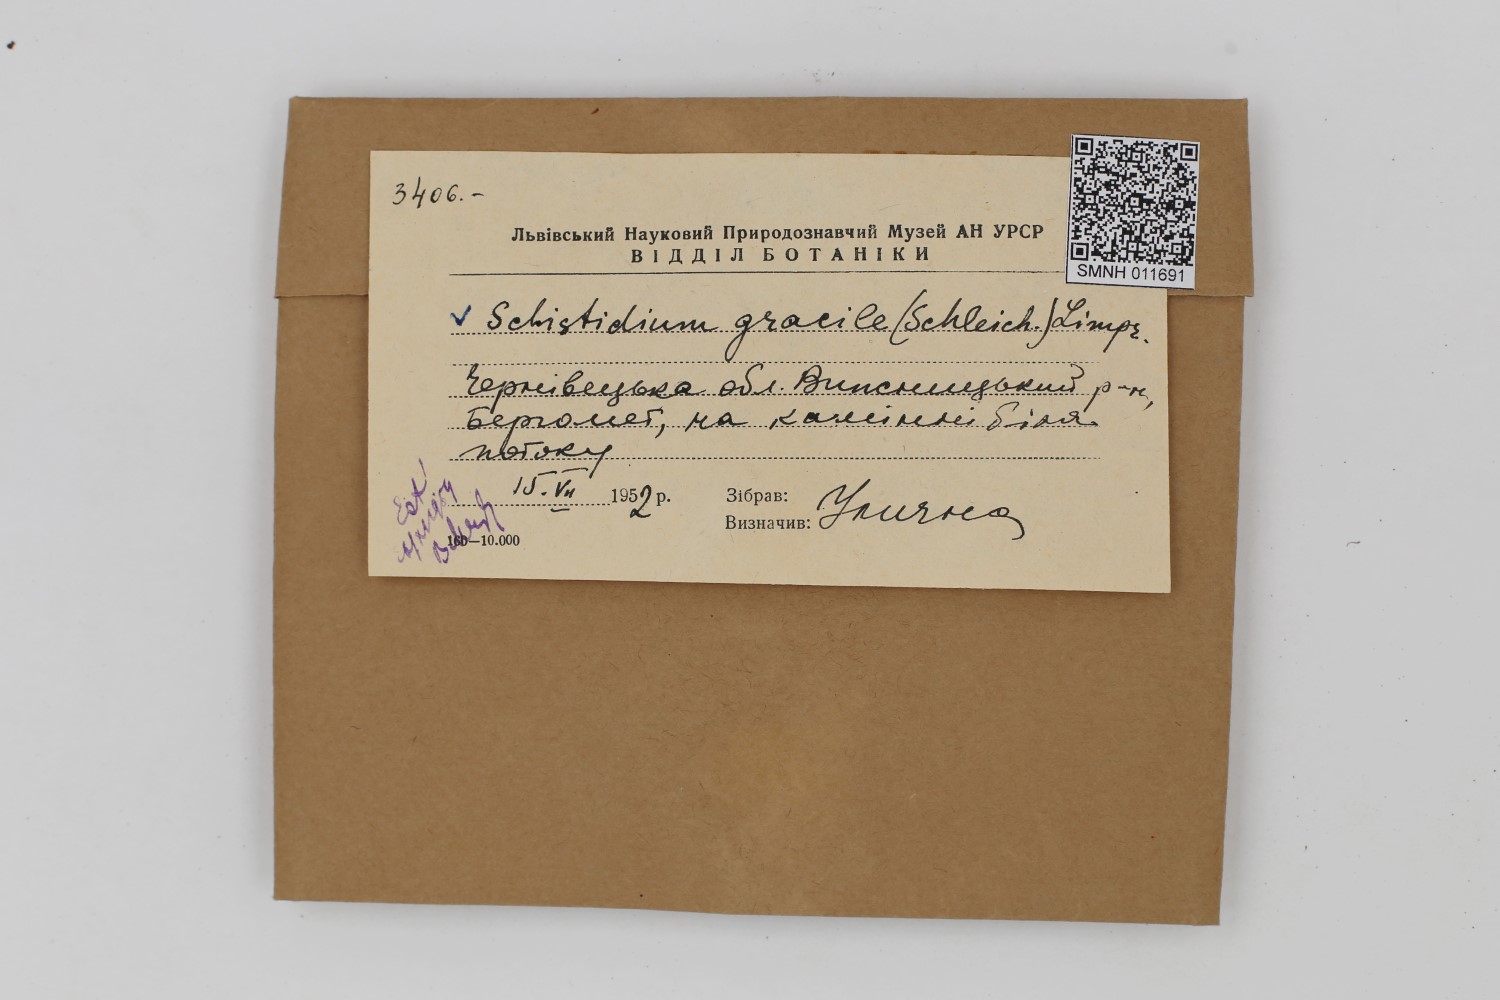 3406.-
Львівський Науковий Природознавчий Музей АН УРСР
ВІДДІЛ БОТАНІКИ
SMNH 011691
✓ Schistidium gracile (Schleich.) Limpr.
Чернівецька обл. Вижницький р-н,
Берегомет, на камінні біля
потоку
15.VII 1952 р.
Зібрав:
Визначив: Улична
160—10.000